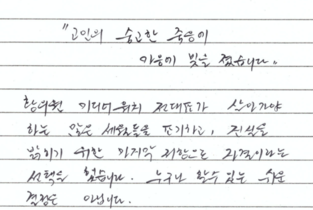 "고인의 숭고한 죽음이
마음이 빚을 졌습니다.
함여원 미디어워치 전대표가 살아가야
하는 많은 세월들을 포기하고, 진실을
밝히기 위한 마지막 저항으로 자결이라는
선택을 했습니다. 누구나 할수 있는 쉬운
결정은 아닙니다.